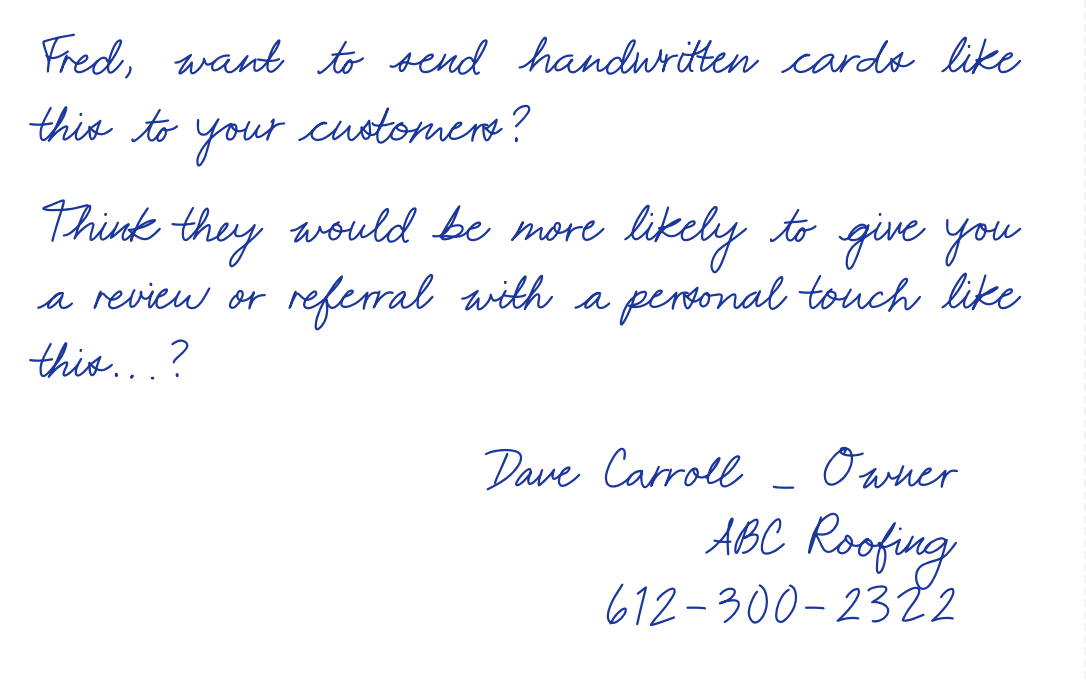 Fred, want to send handwritten cards like
this to your customers?
Think they would be more likely to give you
a review or referral with a personal touch like
this...?
Dave Carroll - Owner
ABC Roofing
612-300-2322